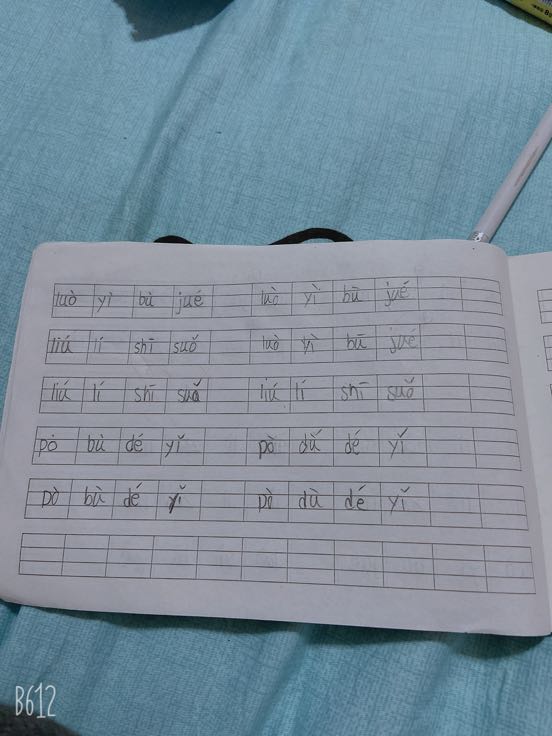 luò yì bù jué luò yì bū jué
liú lí shī suǒ luò yì bū jué
liú lí shī suǒ liú lí shī suǒ
pò bù dé yǐ pò dǔ dé yǐ
pò bù dé yǐ pò dù dé yǐ
B612